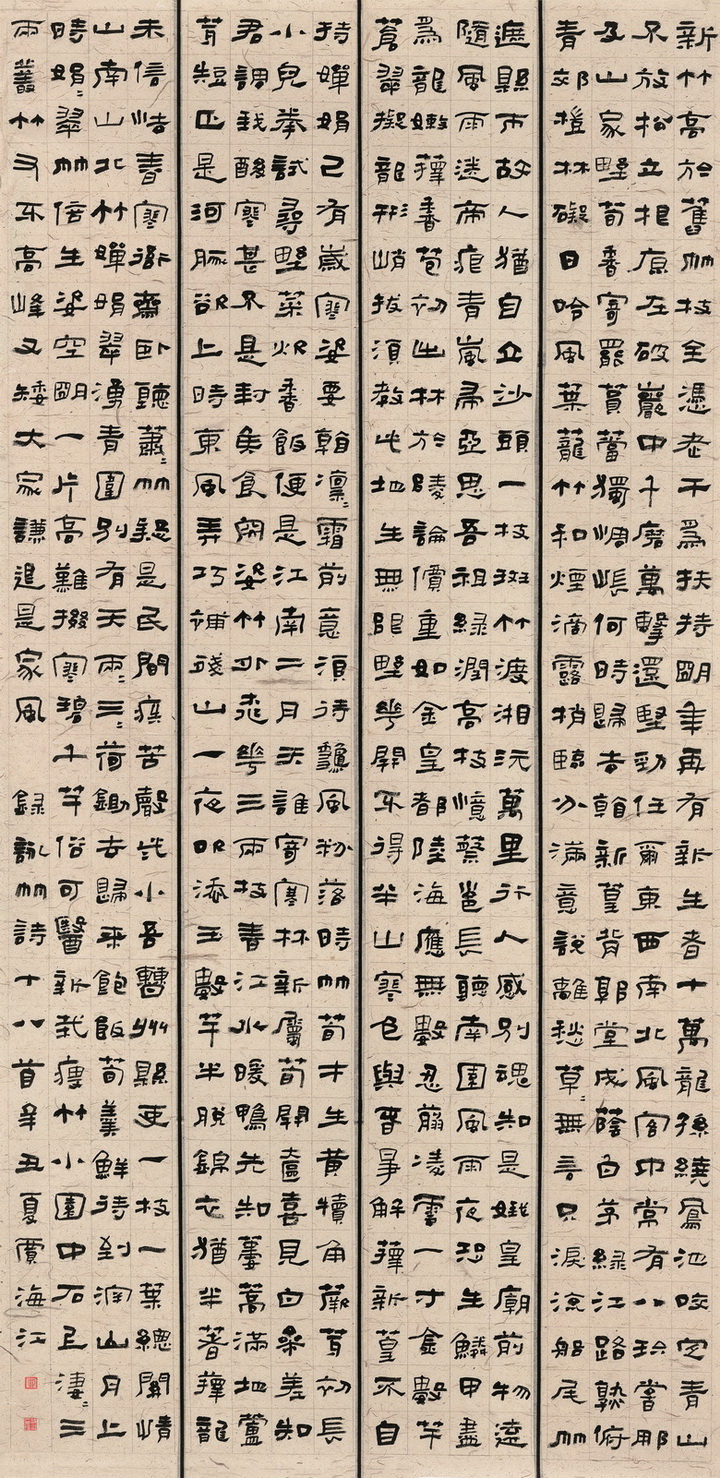 新竹高於舊竹枝全憑老干為扶持明年再有新生者十萬龍孫繞鳳池咬定青山
不放松立根原在破巖中千磨萬擊還堅勁任爾東西南北風客中常有八珍嘗那
及山家野筍香寄罷篔簹獨惆悵何時歸去看新篁背郭堂成蔭白茅緣江路熟俯
青郊榿林礙日吟風葉籠竹和煙滴露梢臨分滿意說離愁草草無言只淚流船尾竹
進縣市故人猶自立沙頭一枝斑竹渡湘沅萬里行人感別魂知是娥皇廟前物遠
隨風雨送啼痕青嵐帚亞思吾祖綠潤高枝憶蔡邕長聽南園風雨夜恐生鱗甲盡
為龍嫩籜香苞初出林於陵論價重如金皇都陸海應無數忍翦凌雲一寸金數竿
蒼翠擬龍形峭拔須教此地生無限野花開不得半山寒色與春爭解籜新篁不自
持嬋娟已有歲寒姿要看凜凜霜前意須待龝風粉落時竹筍才生黃犢角蕨芽初長
小兒拳試尋野菜炊香飯便是江南二月天誰寄寒林新斸筍開奩喜見白參差知
君調我酸寒甚不是封侯食肉姿竹外桃花三兩枝春江水暖鴨先知蔞蒿滿地蘆
芽短正是河豚欲上時東風弄巧補殘山一夜吹添玉數竿半脫錦衣猶半著籜龍
未信怯春寒衙齋臥聽蕭蕭竹疑是民間疾苦聲些小吾曹州縣吏一枝一葉總關情
山南山北竹嬋娟翠湧青圍別有天兩兩三三荷鋤去歸來飽飯筍羹鮮待到深山月上
時娟娟翠竹倍生姿空明一片高難掇寒碧千竿俗可醫新栽瘦竹小園中石上淒淒三
兩叢竹又不高峰又矮大家謙退是家風 錄詠竹詩十八首辛丑夏賈海江